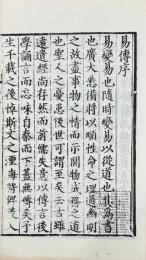 易傳序
易變易也隨時變易以從道也其為書
也廣大悉備將以順性命之理通幽明
之故盡事物之情而示開物成務之道
也聖人之憂患後世可謂至矣去古雖
遠遺經尚存然而前儒失意以傳言後
學誦言而忘味自秦而下蓋無傳矣予
生千載之後悼斯文之湮晦將俾後人